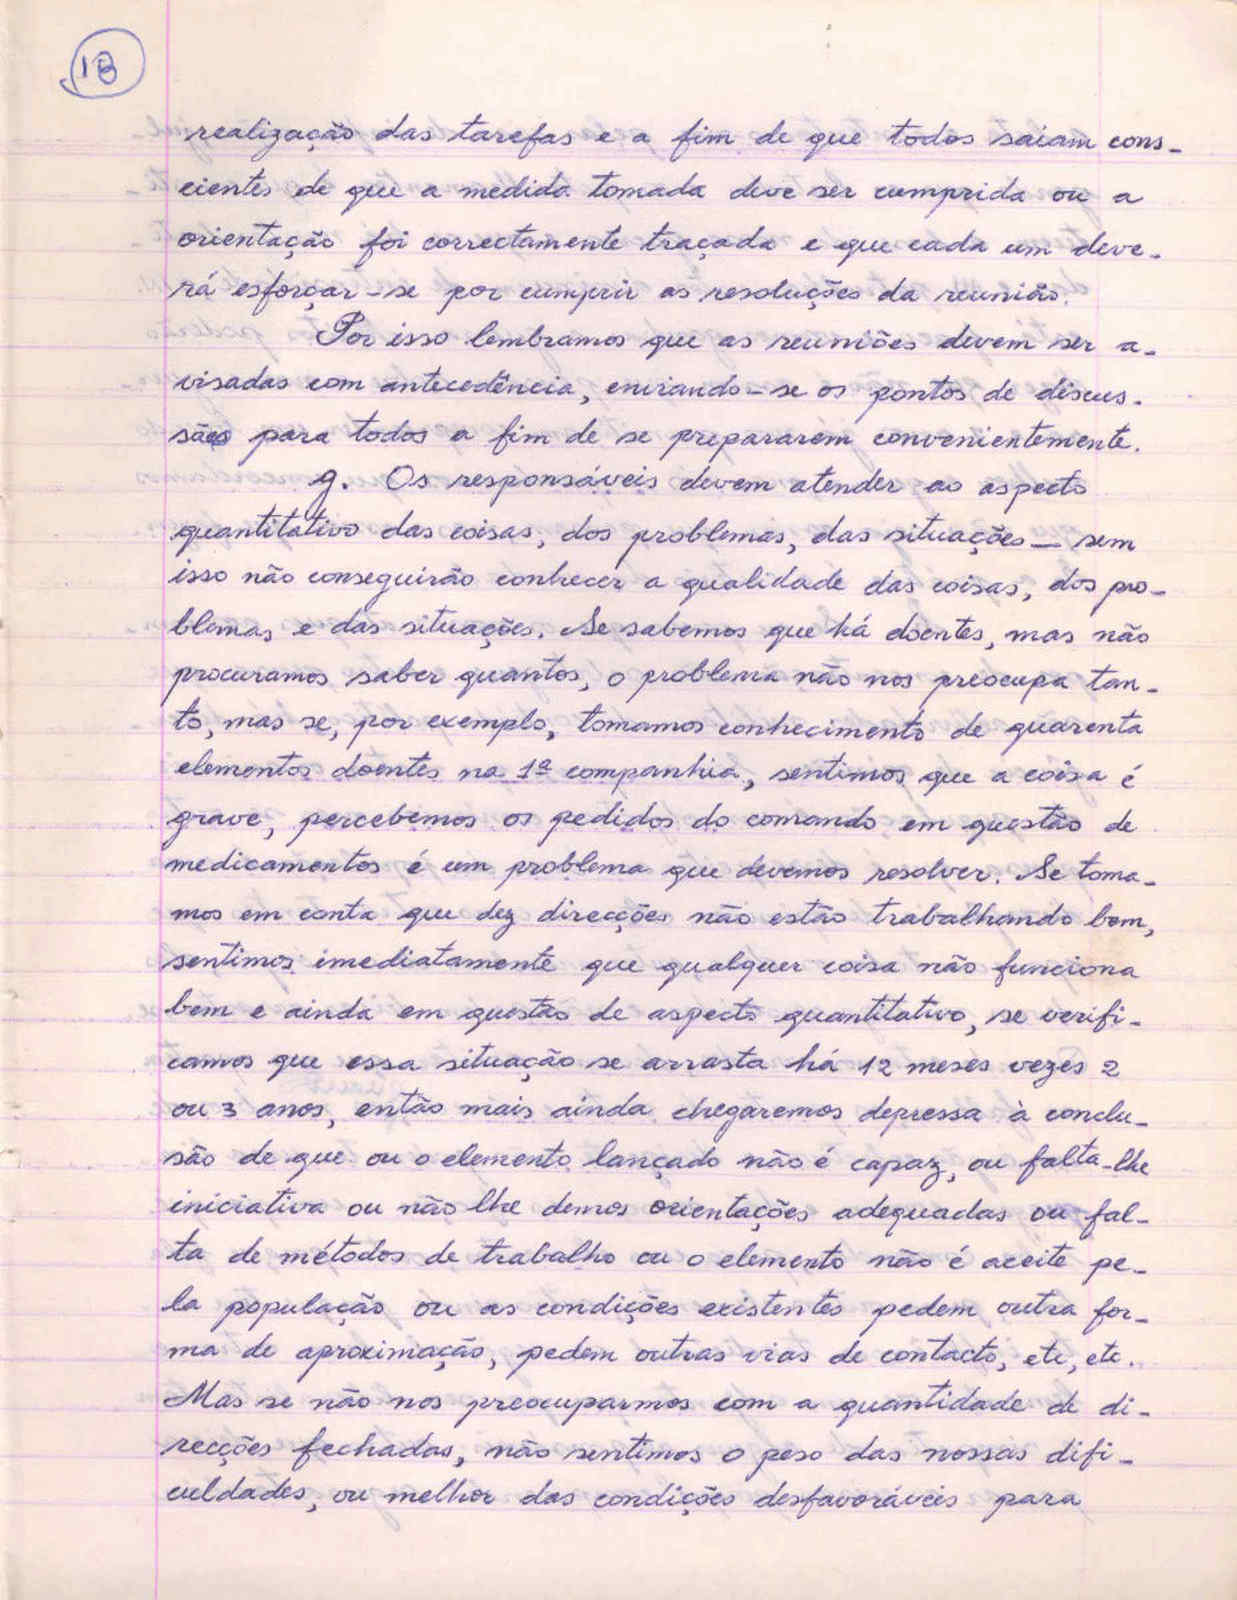 18
realização das tarefas e a fim de que todos saiam cons-
cientes de que a medida tomada deve ser cumprida ou a
orientação foi correctamente traçada e que cada um deve-
rá esforçar-se por cumprir as resoluções da reunião.
Por isso lembramos que as reuniões devem ser a-
visadas com antecedência, enviando-se os pontos de discus-
são para todos a fim de se prepararem convenientemente.
g. Os responsáveis devem atender ao aspecto
quantitativo das coisas, dos problemas, das situações — sem
isso não conseguirão conhecer a qualidade das coisas, dos pro-
blemas e das situações. Se sabemos que há doentes, mas não
procuramos saber quantos, o problema não nos preocupa tan-
to, mas se, por exemplo, tomamos conhecimento de quarenta
elementos doentes na 1ª companhia, sentimos que a coisa é
grave, percebemos os pedidos do comando em questão de
medicamentos é um problema que devemos resolver. Se toma-
mos em conta que dez direcções não estão trabalhando bem,
sentimos imediatamente que qualquer coisa não funciona
bem e ainda em questão de aspecto quantitativo, se verifi-
camos que essa situação se arrasta há 12 meses vezes 2
ou 3 anos, então mais ainda chegaremos depressa à conclu-
são de que ou o elemento lançado não é capaz, ou falta-lhe
iniciativa ou não lhe demos orientações adequadas ou fal-
ta de métodos de trabalho ou o elemento não é aceite pe-
la população ou as condições existentes pedem outra for-
ma de aproximação, pedem outras vias de contacto, etc, etc.
Mas se não nos preocuparmos com a quantidade de di-
recções fechadas, não sentimos o peso das nossas difi-
culdades, ou melhor das condições desfavoráveis para